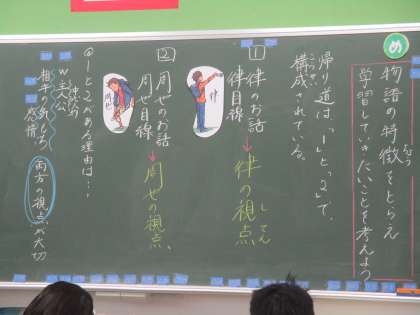 め
物語の特徴をとらえ
学習していきたいことを考えよう
帰り道は、「1」と「2」で、
こうせい
構成されている。
1
律のお話
律目線
→律の視点
してん
律
2
周也のお話
周也目線
→周也の視点
周也
@1と2がある理由は…
W主人公
相手の気もち
感情
両方の視点が大切